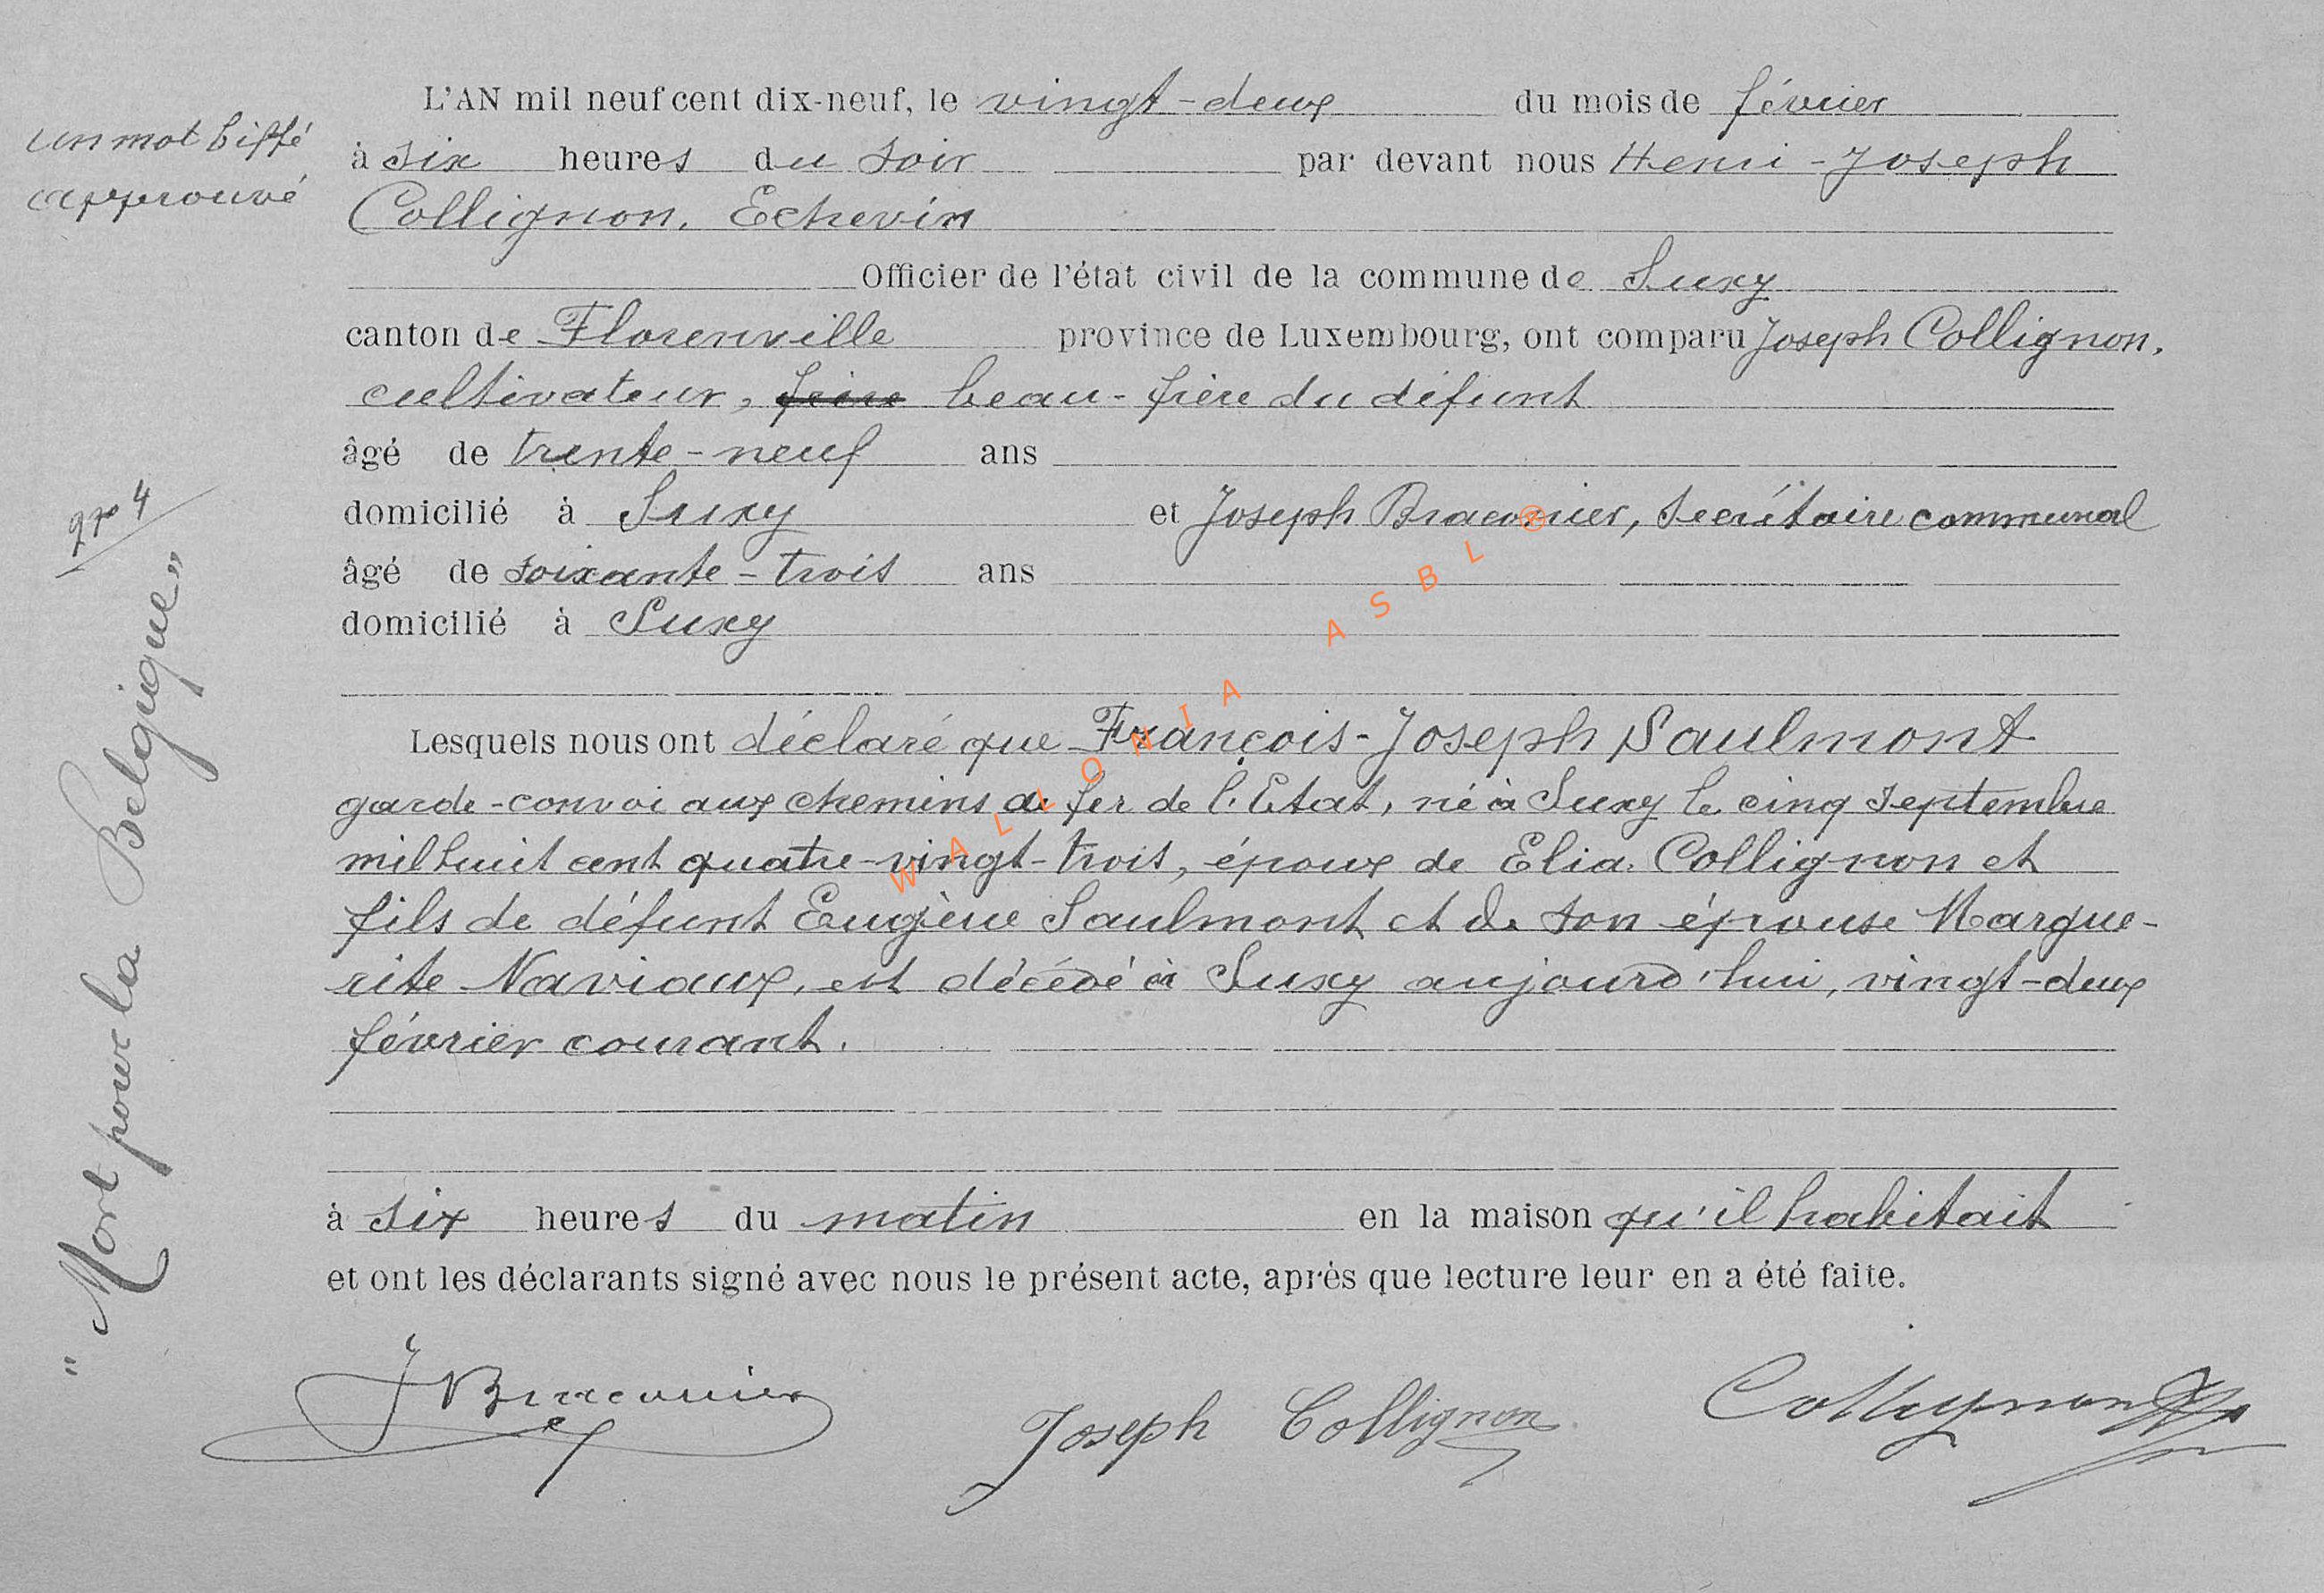 L'AN mil neuf cent dix-neuf, le vingt-deux du mois de février
un mot biffé
approuvé
à six heures du soir par devant nous Henri-Joseph
Collignon, Echevin
Officier de l'état civil de la commune de Suxy
canton de Florenville province de Luxembourg, ont comparu Joseph Collignon,
cultivateur, frère beau-frère du défunt
âgé de trente-neuf ans
domicilié à Suxy et Joseph Braconnier, Secrétaire communal
âgé de soixante-trois ans
domicilié à Suxy
No 4
"Mort pour la Belgique"
Lesquels nous ont déclaré que François-Joseph Saulmont
garde-convoi aux chemins de fer de l'Etat, né à Suxy le cinq septembre
mil huit cent quatre-vingt-trois, époux de Elia Collignon et
fils de défunt Eugène Saulmont et de son épouse Margue-
rite Naviaux, est décédé à Suxy aujourd'hui, vingt-deux
février courant.
à six heures du matin en la maison qu'il habitait
et ont les déclarants signé avec nous le présent acte, après que lecture leur en a été faite.
J Braconnier
Joseph Collignon
Collignon
WALLONIA ASBL ®